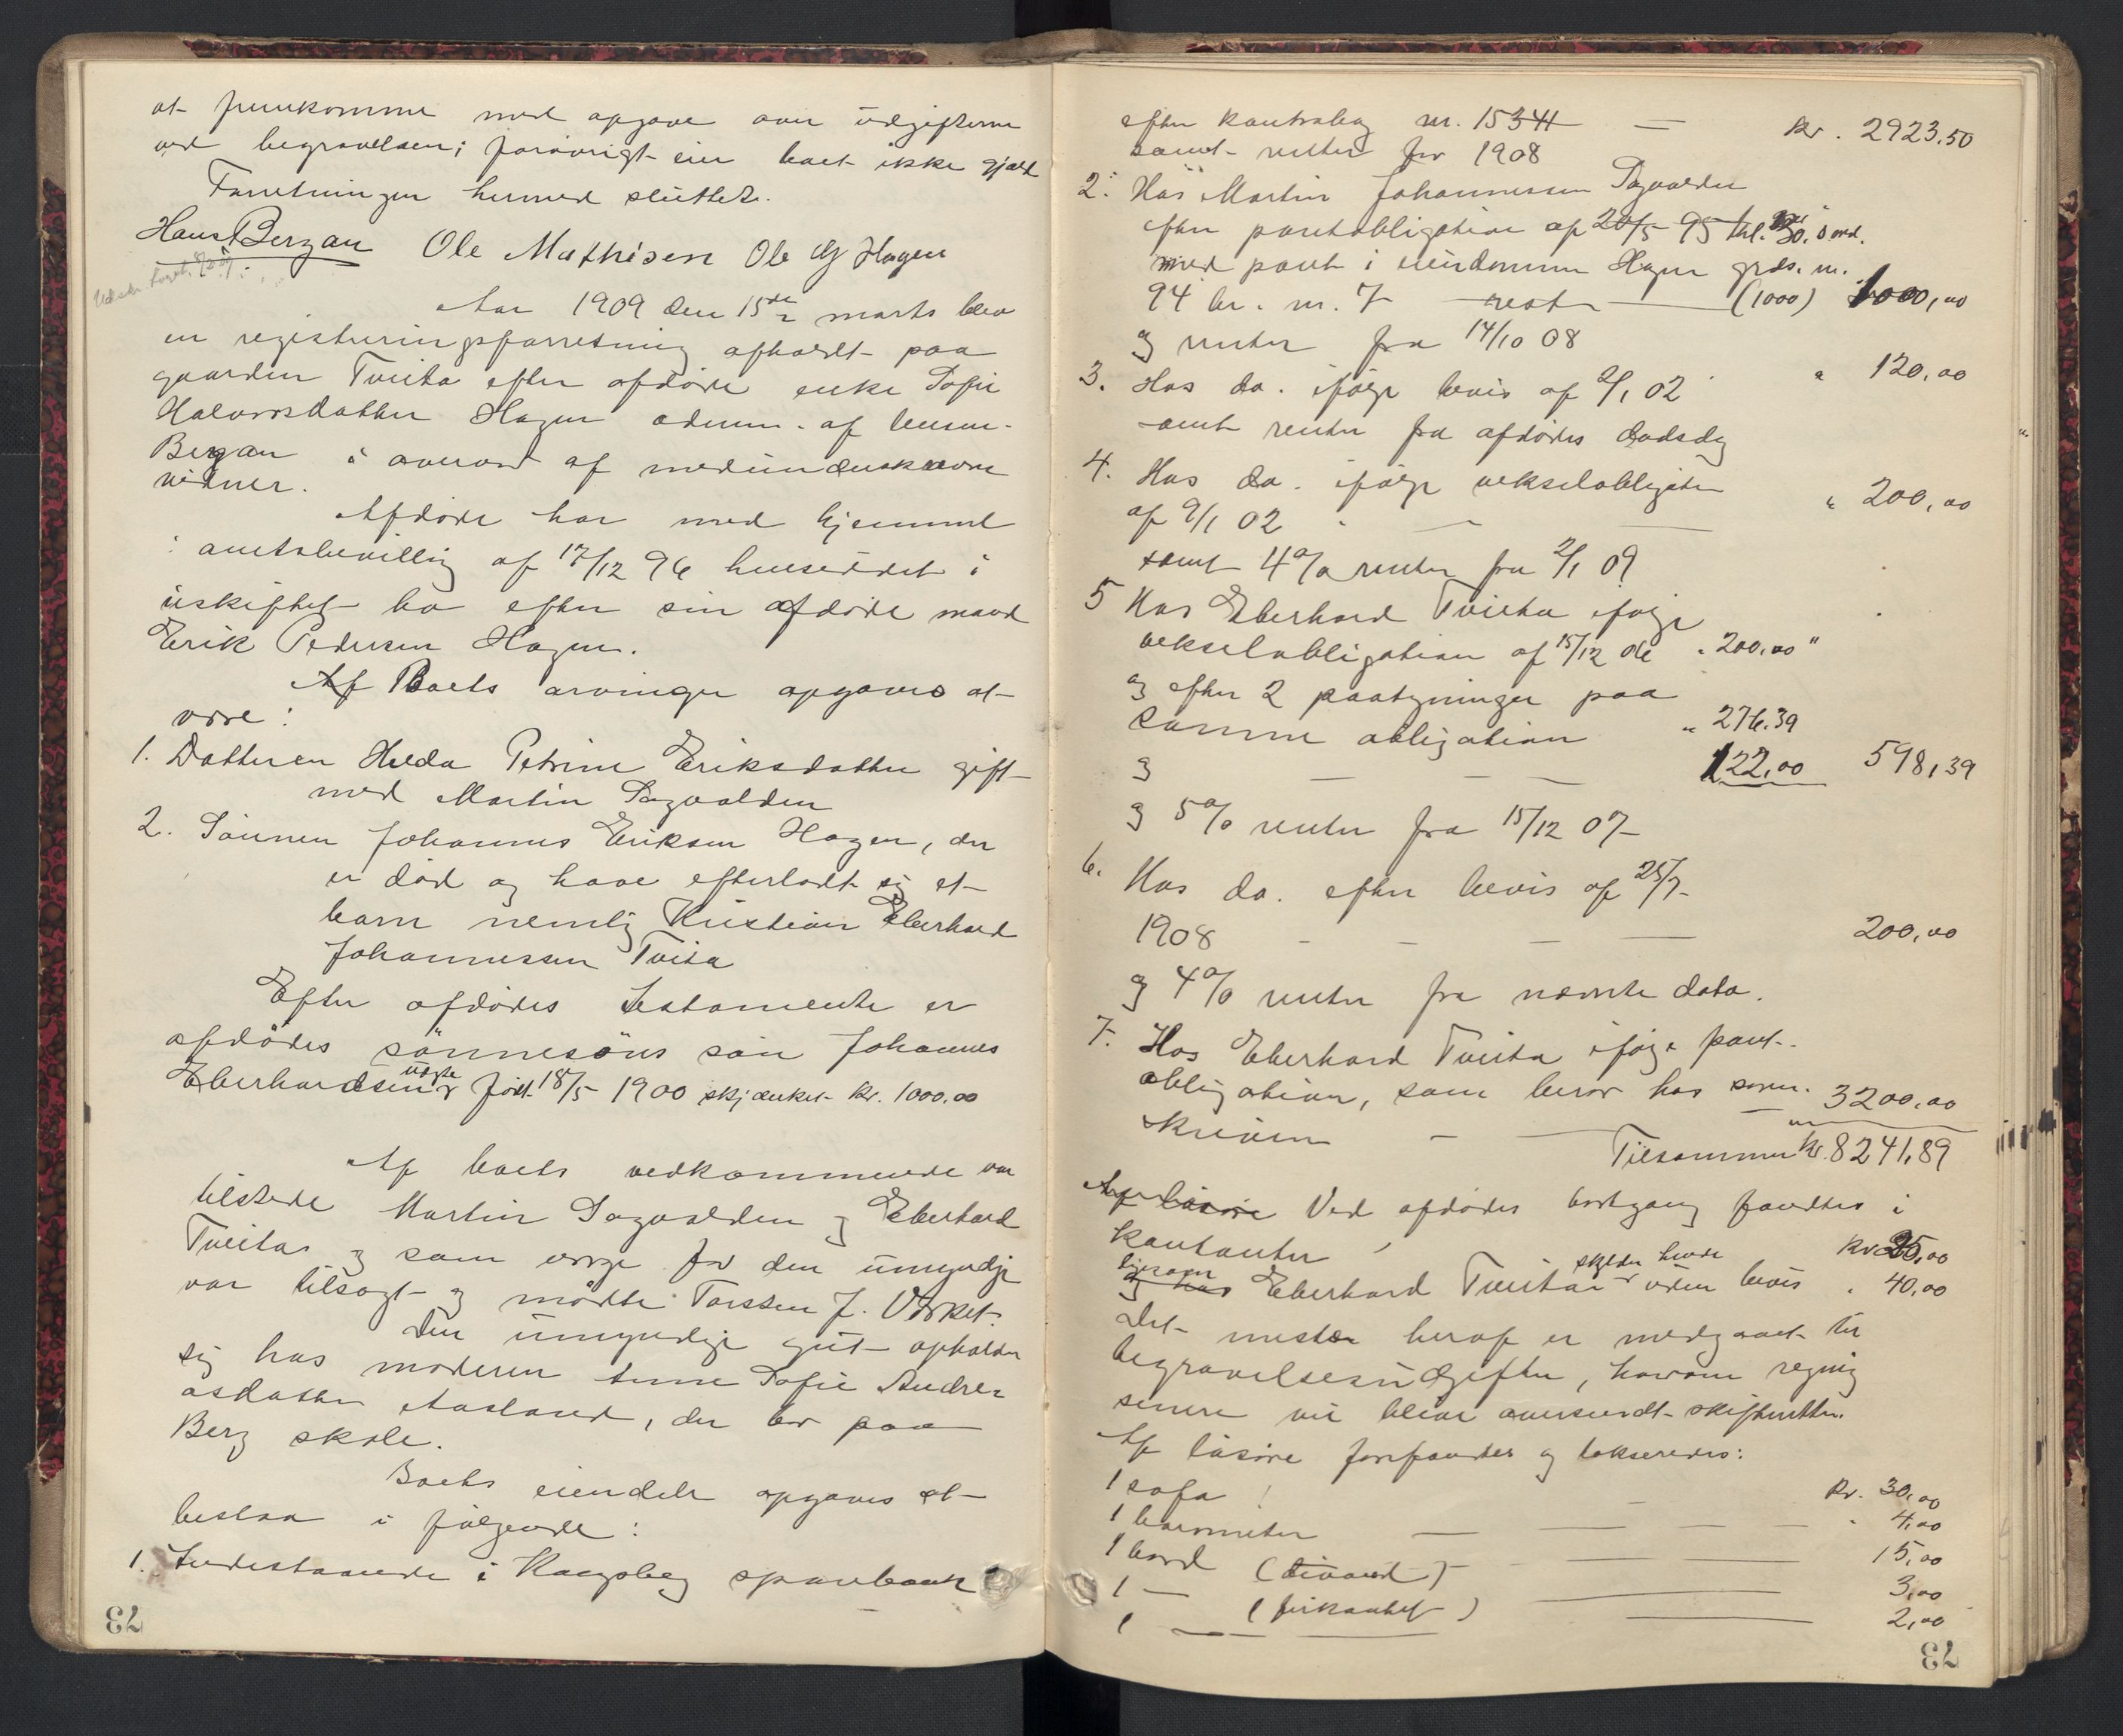 at fremkomme med opgave over udgifterne
ved begravelsen; forøvrigt eier boet ikke gjæld
Forretningen hermed sluttet.
Hans Bergan Ole Mathisen Ole Hagen
Aar 1909 den 15de marts blev
en registreringsforretning afholdt paa
gaarden Tveita efter afdøde enke Sofie
Halvorsdatter Hagen admin. af lensm.
Bergan i overvær af medunderskrevne
vidner.
Afdøde har med hjemmel
i amtsbevilling af 17/12 96 hensiddet i
uskiftet bo efter sin afdøde mand
Erik Pedersen Hagen.
Af Boets arvinger opgaves at
være:
1. Datteren Helda Petrine Eriksdatter gift
med Martin Sagvolden
2. Sønnen Johannes Eriksen Hagen, der
er død og have efterladt sig et
barn nemlig Kristian Eberhard
Johannessen Tveita
Efter afdødes testamente er
afdødes sønnesøns søn Johannes
Eberhardsen ugte født 18/5 1900 skjænket kr. 1000.00
Af boets vedkommende var
tilstede Martin Sagvolden og Eberhard
Tveitas og som verge for den umyndige
var tilsagt og mødte Torsten J. Værket.
Den umyndige gut opholder
sig hos moderen Anne Sofie Andre=
asdatter Aasland, der bor paa
Berg skole.
Boets eiendele opgaves at
bestaa i følgende:
1. Indestaaende i Kongsberg sparebank
73
efter kontrabog nr. 15341 — kr. 2923.50
samt renter for 1908
2. Hos Martin Johannessen Sagvolden
efter pantobligation af 20/5 95 thl. 30. s. md.
med pant i eiendommen Hagen grds. nr.
94 br. nr. 7 rest — (1000) 1000,00
og renter fra 14/10 08
3. Hos do. ifølge bevis af 2/1 02 " 120,00
samt renter fra afdødes dødsdag
4. Hos do. ifølge vekselobligation
af 9/1 02 — " 200,00
samt 4% renter fra 2/1 09
5 Hos Eberhard Tveita ifølge
vekselobligation af 15/12 06 " 200,00 "
og efter 2 paategninger paa
samme obligation " 276.39
og — — — 122,00 598,39
og 5% renter fra 15/12 07
6. Hos do. efter bevis af 25/7
1908 — — — 200,00
og 4% renter fra nævnte dato.
7. Hos Eberhard Tveita ifølge pant-
obligation, som beror hos soren-
skriveren — 3200,00
Tilsammen kr. 8241,89
Af løsøre Ved afdødes bortgang fandtes i
kontanter kr 25,00
ligesom
og hos Eberhard Tveitas skylder hende uden bevis " 40,00
Det meste heraf er medgaaet til
begravelsesudgifter, hvorom regning
senere vil blive oversendt skifteretten.
Af løsøre forefandtes og takseredes:
1 sofa — kr. 30,00
1 barometer — — — " 4,00
1 bord (divanbord) — 15,00
1 — (firkantet) — 3,00
1 — — — 2,00
73